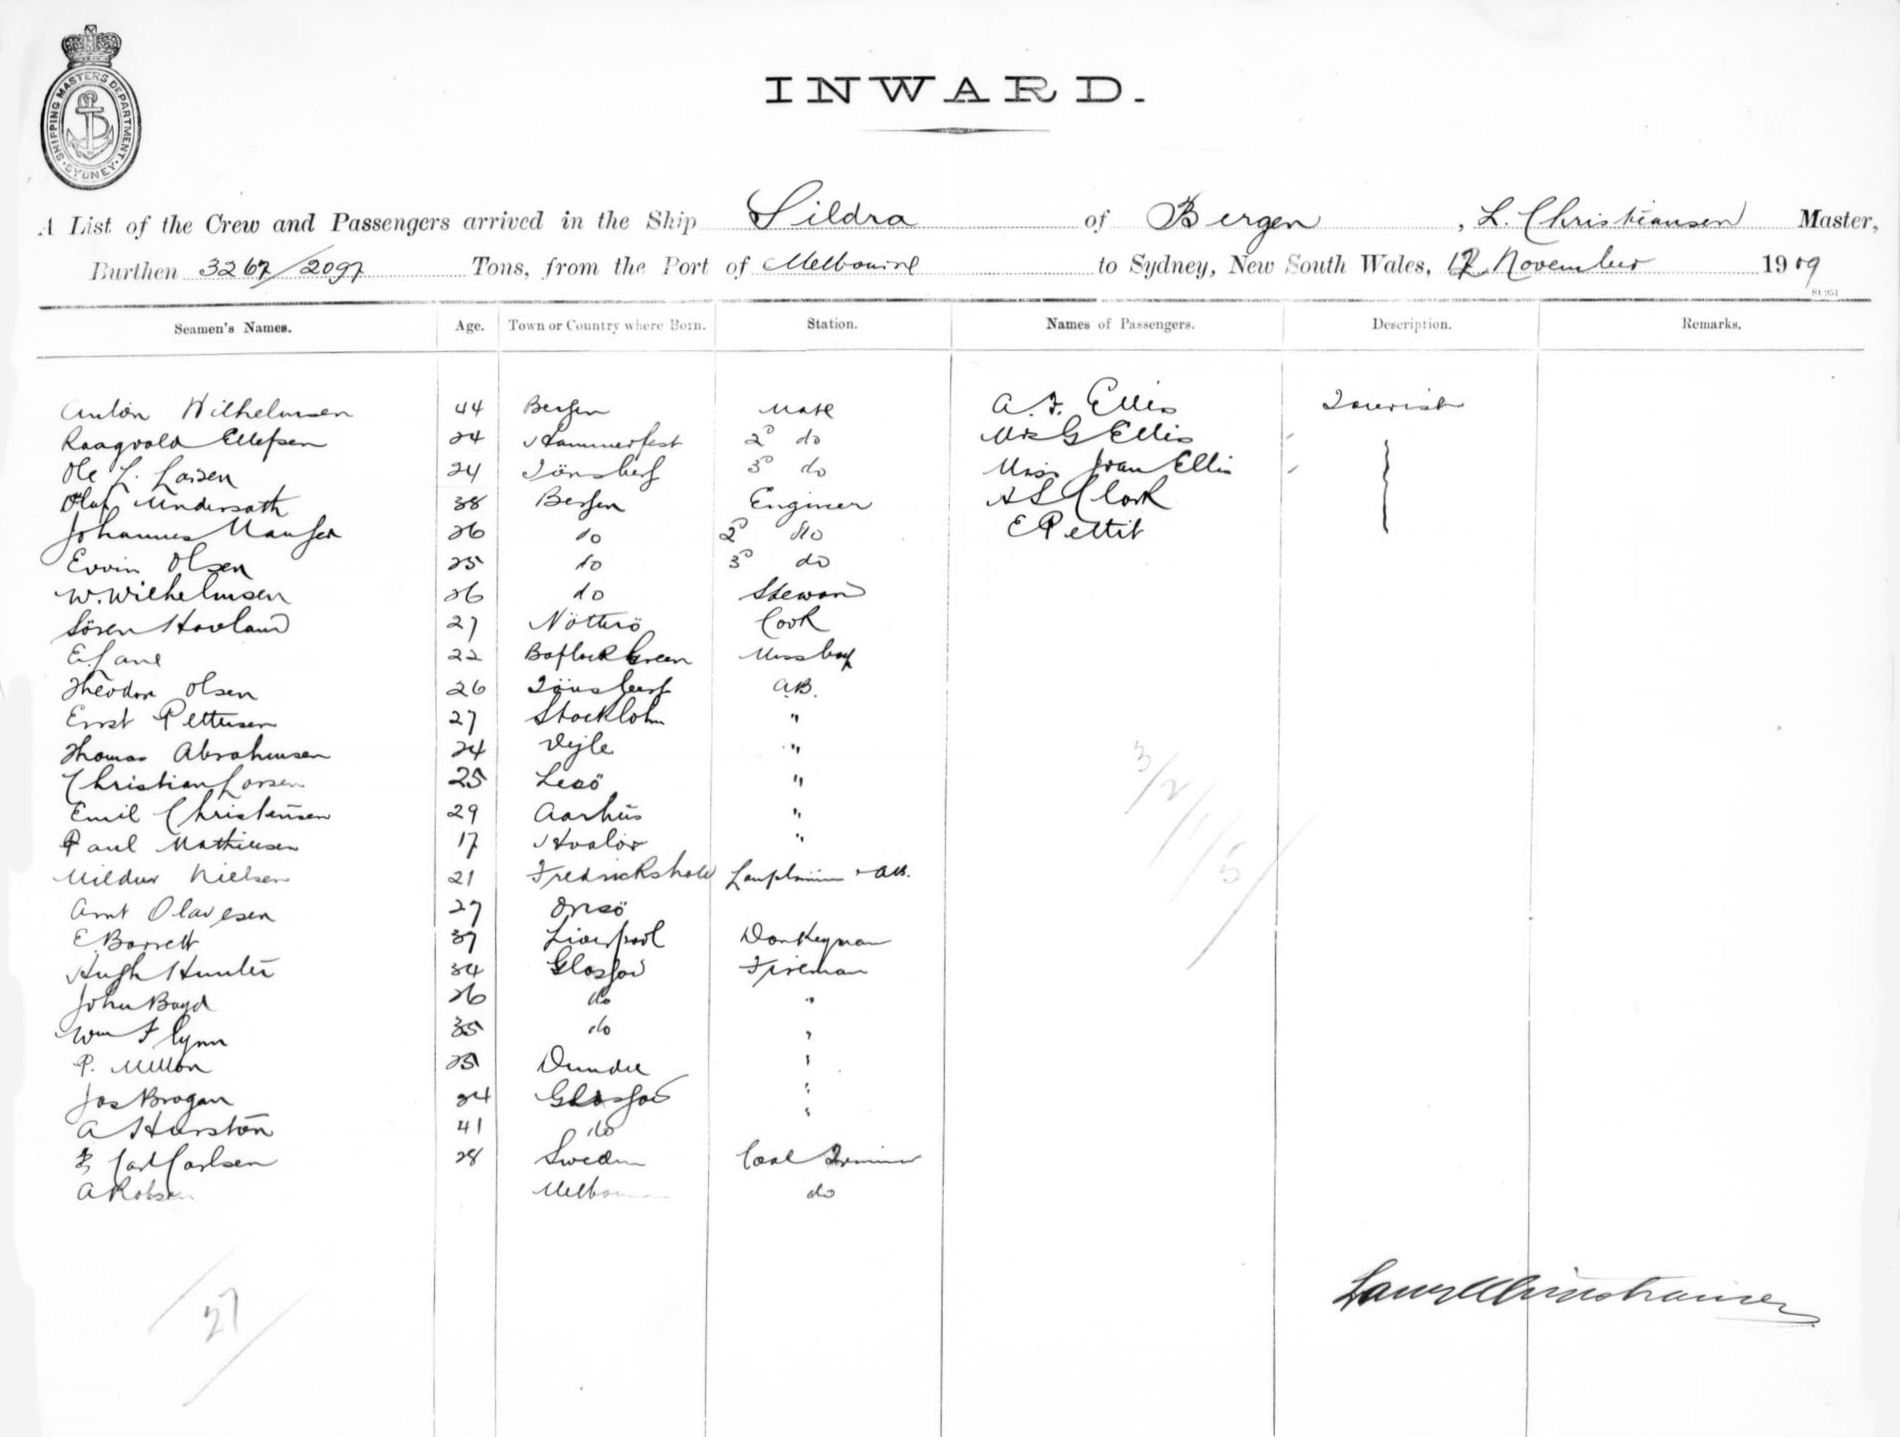 SHIPPING MASTERS DEPARTMENT · SYDNEY ·
INWARD.
A List of the Crew and Passengers arrived in the Ship Sildra of Bergen, L. Christiansen Master,
Burthen 3267/2097 Tons, from the Port of Melbourne to Sydney, New South Wales, 12 November 1909
Seamen's Names. Age. Town or Country where Born. Station. Names of Passengers. Description. Remarks.
Anton Wilhelmsen 44 Bergen Mate A. F. Ellis Tourist
Raagvald Ellefsen 24 Hammerfest 2º do Mrs G Ellis
Ole L. Larsen 24 Tönsberg 3º do Miss Jean Ellis
Olaf 38 Bergen Engineer A S Clark
Johannes 26 do 2º do E Pettit
Ervin Olsen 25 do 3º do
W. Wilhelmsen 26 do Steward
Sören Hovland 27 Nötterö Cook
E. Lane 22 Green Messboy
Theodor Olsen 26 Tönsberg A.B.
Ernst Pettersen 27 Stockholm "
Thomas Abrahmsen 24 Vejle "
Christian Larsen 25 Lesö "
Emil Christensen 29 Aarhus "
Paul Mathiesen 17 Hvalör "
Nielsen 21 Fredrickshald Lamptrimmer & AB.
Arnt Olavesen 27 Onsö
E. Barrett 37 Liverpool Donkeyman
Hugh Hunter 34 Glasgow Fireman
John Boyd 26 do "
Wm Flynn 35 do "
P. Mellon 25 Dundee "
Jas Brogan 24 Glasgow "
A Hurston 41 do "
Carl Carlsen 28 Sweden Coal Trimmer
A Robson Melbourne do
3/2/1/5/
27